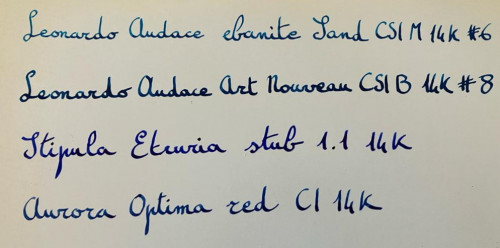 Leonardo Audace ebanite Sand CSI M 14K #6
Leonardo Audace Art Nouveau CSI B 14K #8
Stipula Etruria stub 1.1 14K
Aurora Optima red CI 14K